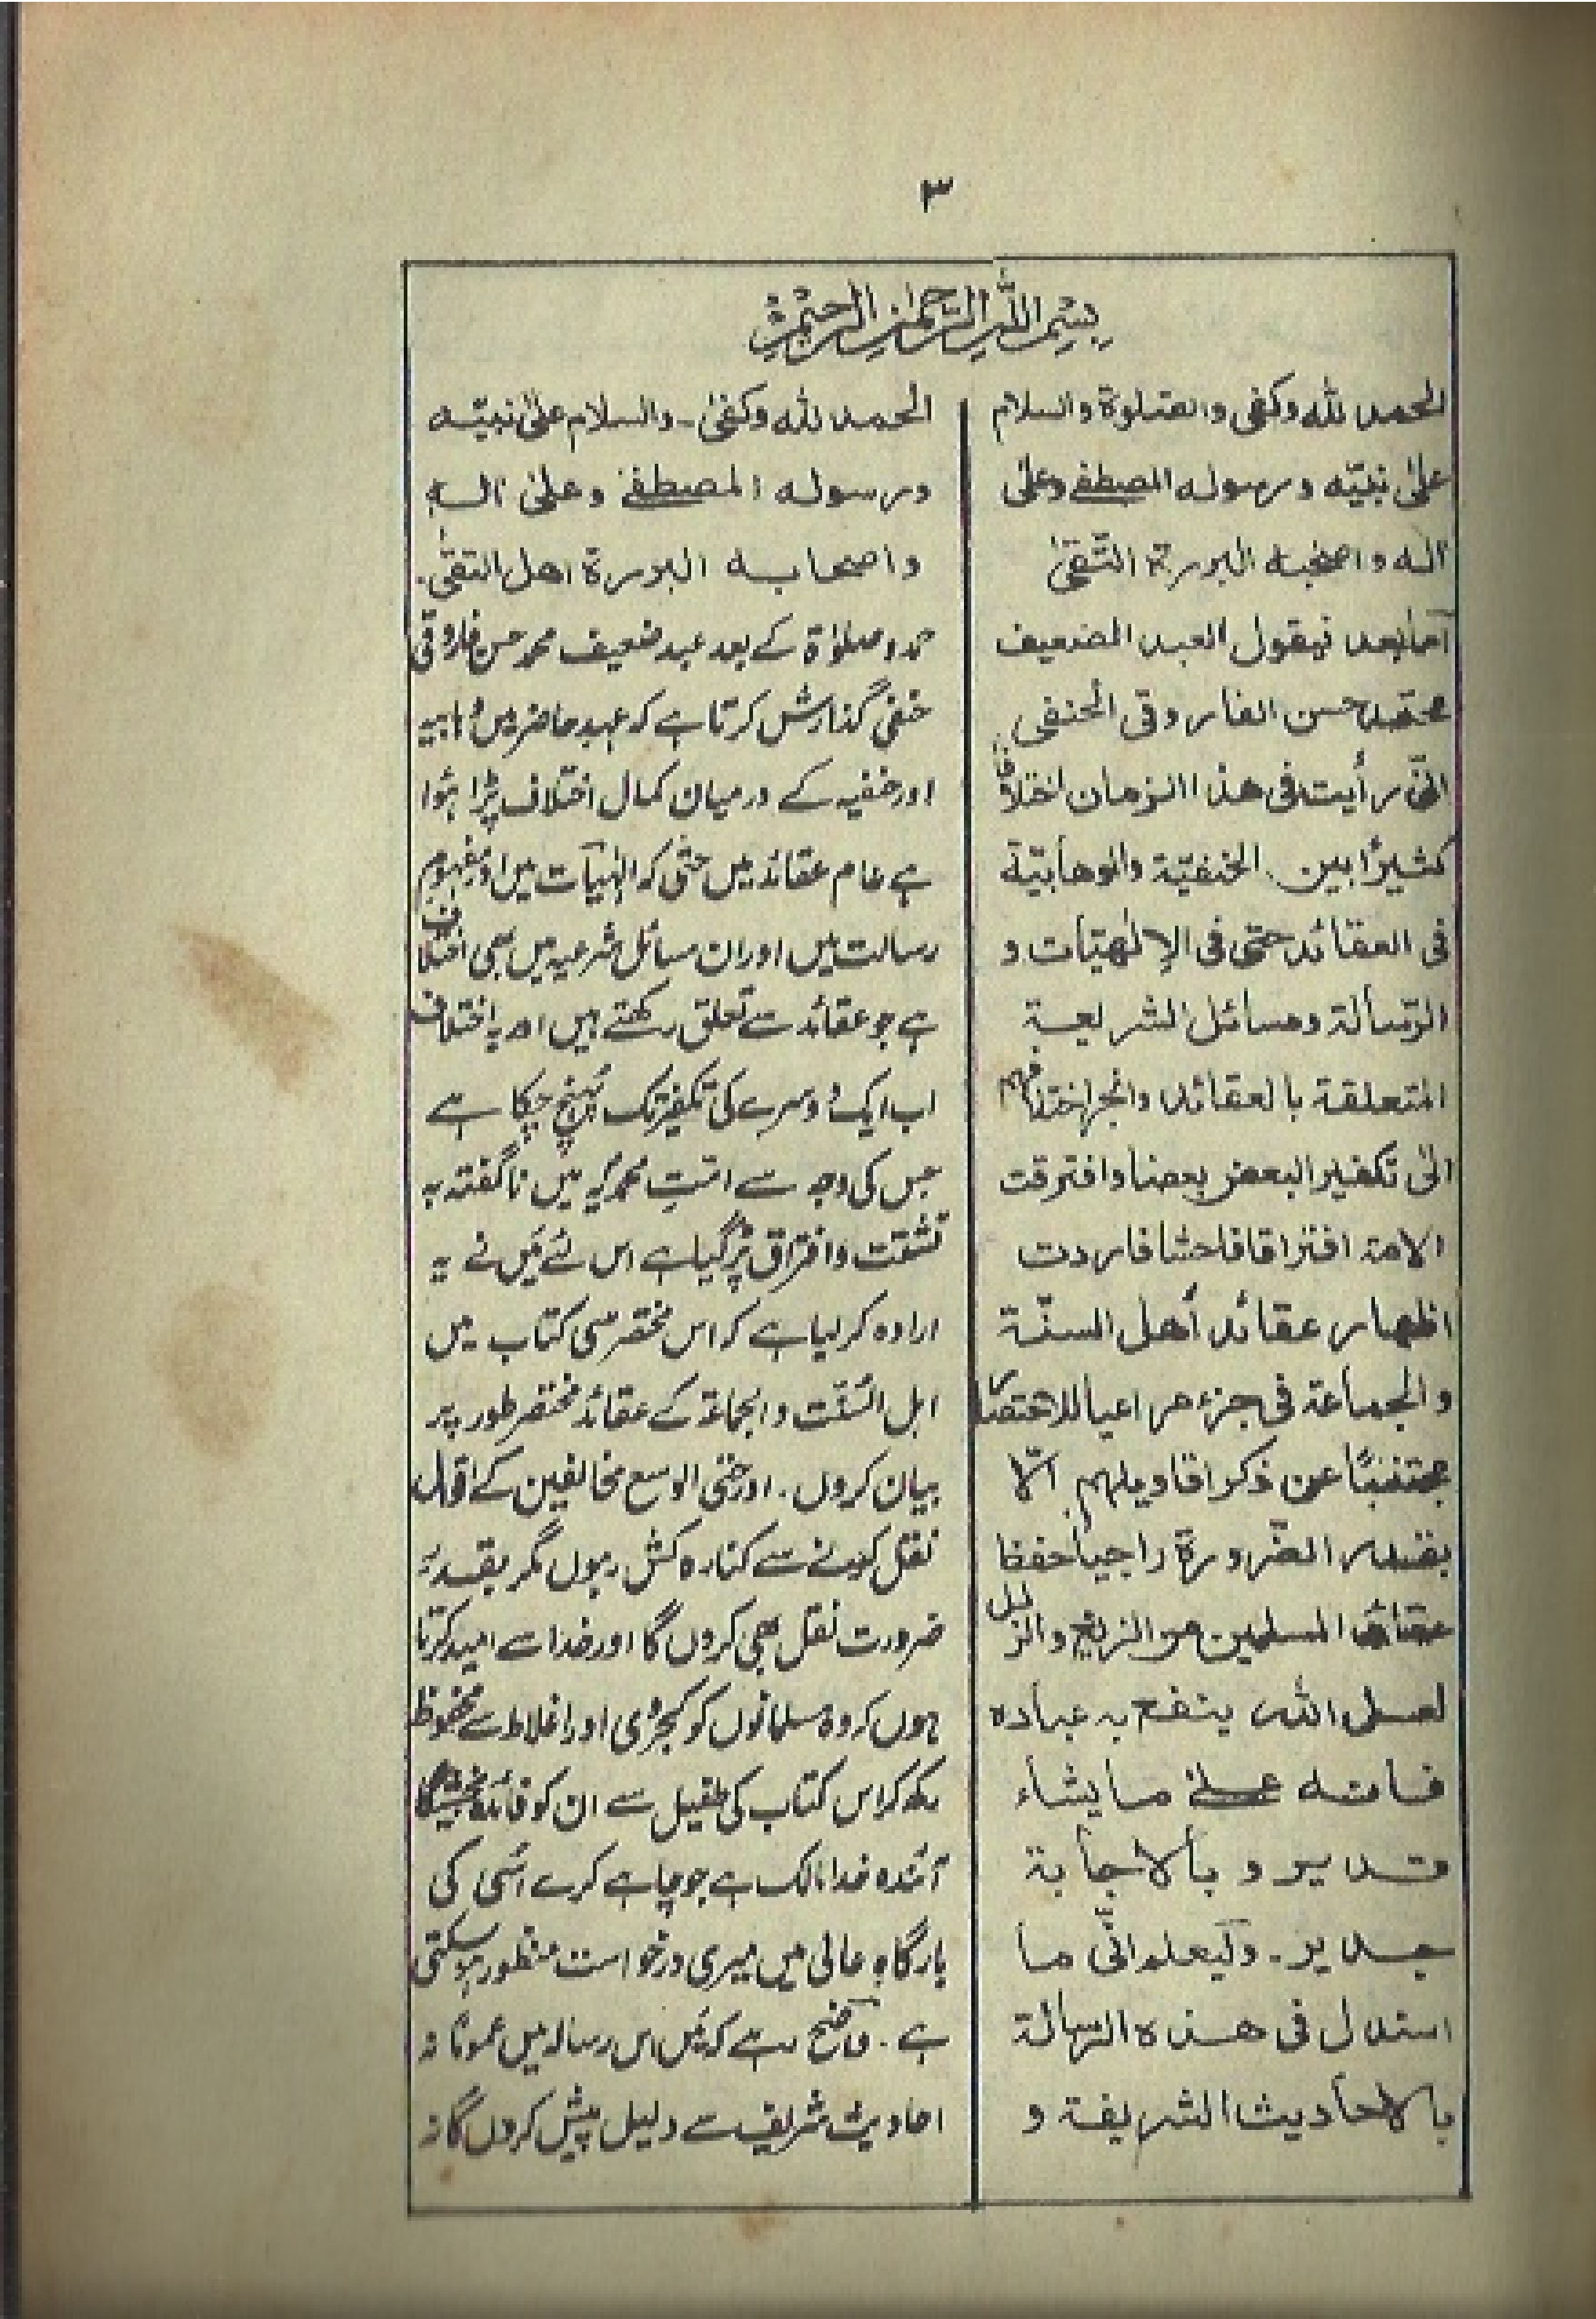 ٣
بسم اللہ الرحمٰن الرحیم
الحمد للہ وکفی والصلوة والسلام
علیٰ نبیّہ ورسولہ المصطفے وعلیٰ
آلہ واصحبہ البررة التّقیٰ
اما بعد فیقول العبد الضعیف
محمّد حسن الفاروقی الحنفی
انّی رأیت فی ھذا الزمان اختلافًا
کثیرًا بین الحنفیّة والوھابیّة
فی العقائد حتّی فی الإلٰھیّات و
الرّسالة ومسائل الشریعة
المتعلقة بالعقائد وانجر اختلافهم
الیٰ تکفیر البعض بعضا وافترقت
الامة افتراقا فاحشا فاردت
اظھار عقائد أھل السنّة
والجماعة فی جزء مراعیا للاختصار
مجتنبًا عن ذکر اقاویلھم الّا
بقدر الضّرورة راجیاً حفظ
عقائد المسلمین من الزیغ والزلل
لعل اللہ ینفع بہ عبادہ
فانہ علیٰ ما یشاء
قدیر و بالاجابة
جدیر۔ ولیعلم انّی ما
استدل فی ھذہ الرسالة
بالاحادیث الشریفة و
الحمد للہ وکفیٰ۔ والسلام علیٰ نبیّہ
ورسولہ المصطفےٰ وعلیٰ الہ
واصحابہ البررة اھل التقیٰ۔
حمد و صلوٰة کے بعد عبد ضعیف محمد حسن فاروقی
حنفی گذارش کرتا ہے کہ عہد حاضر میں وہابیہ
اور حنفیہ کے درمیان کمال اختلاف پڑا ہُوا
ہے عام عقائد میں حتّٰی کہ الٰہیات میں اور مفہوم
رسالت میں اور ان مسائل شرعیہ میں بھی اختلاف
ہے جو عقائد سے تعلق رکھتے ہیں اور یہ اختلاف
اب ایک دوسرے کی تکفیر تک پہنچ چکا ہے
جس کی وجہ سے امّتِ محمدیہ میں ناگفتہ بہ
تشتّت و افتراق پڑ گیا ہے اس لئے مَیں نے یہ
ارادہ کر لیا ہے کہ اس مختصر سی کتاب میں
اہل السُّنّت والجماعة کے عقائد مختصر طور پر
بیان کروں۔ اور حتی الوسع مخالفین کے اقوال
نقل کرنے سے کنارہ کش رہوں مگر بقدر
ضرورت نقل بھی کروں گا اور خدا سے امید کرتا
ہوں کہ وہ مسلمانوں کو کجروی اور اغلاط سے محفوظ
رکھ کر اس کتاب کی طفیل سے ان کو فائدہ بخشیگا
آئندہ خدا مالک ہے جو چاہے کرے اسُی کی
بارگاہ عالی میں میری درخواست منظور ہو سکتی
ہے۔ واضح رہے کہ مَیں اس رسالہ میں عموماً نہ
احادیث شریف سے دلیل پیش کروں گا نہ